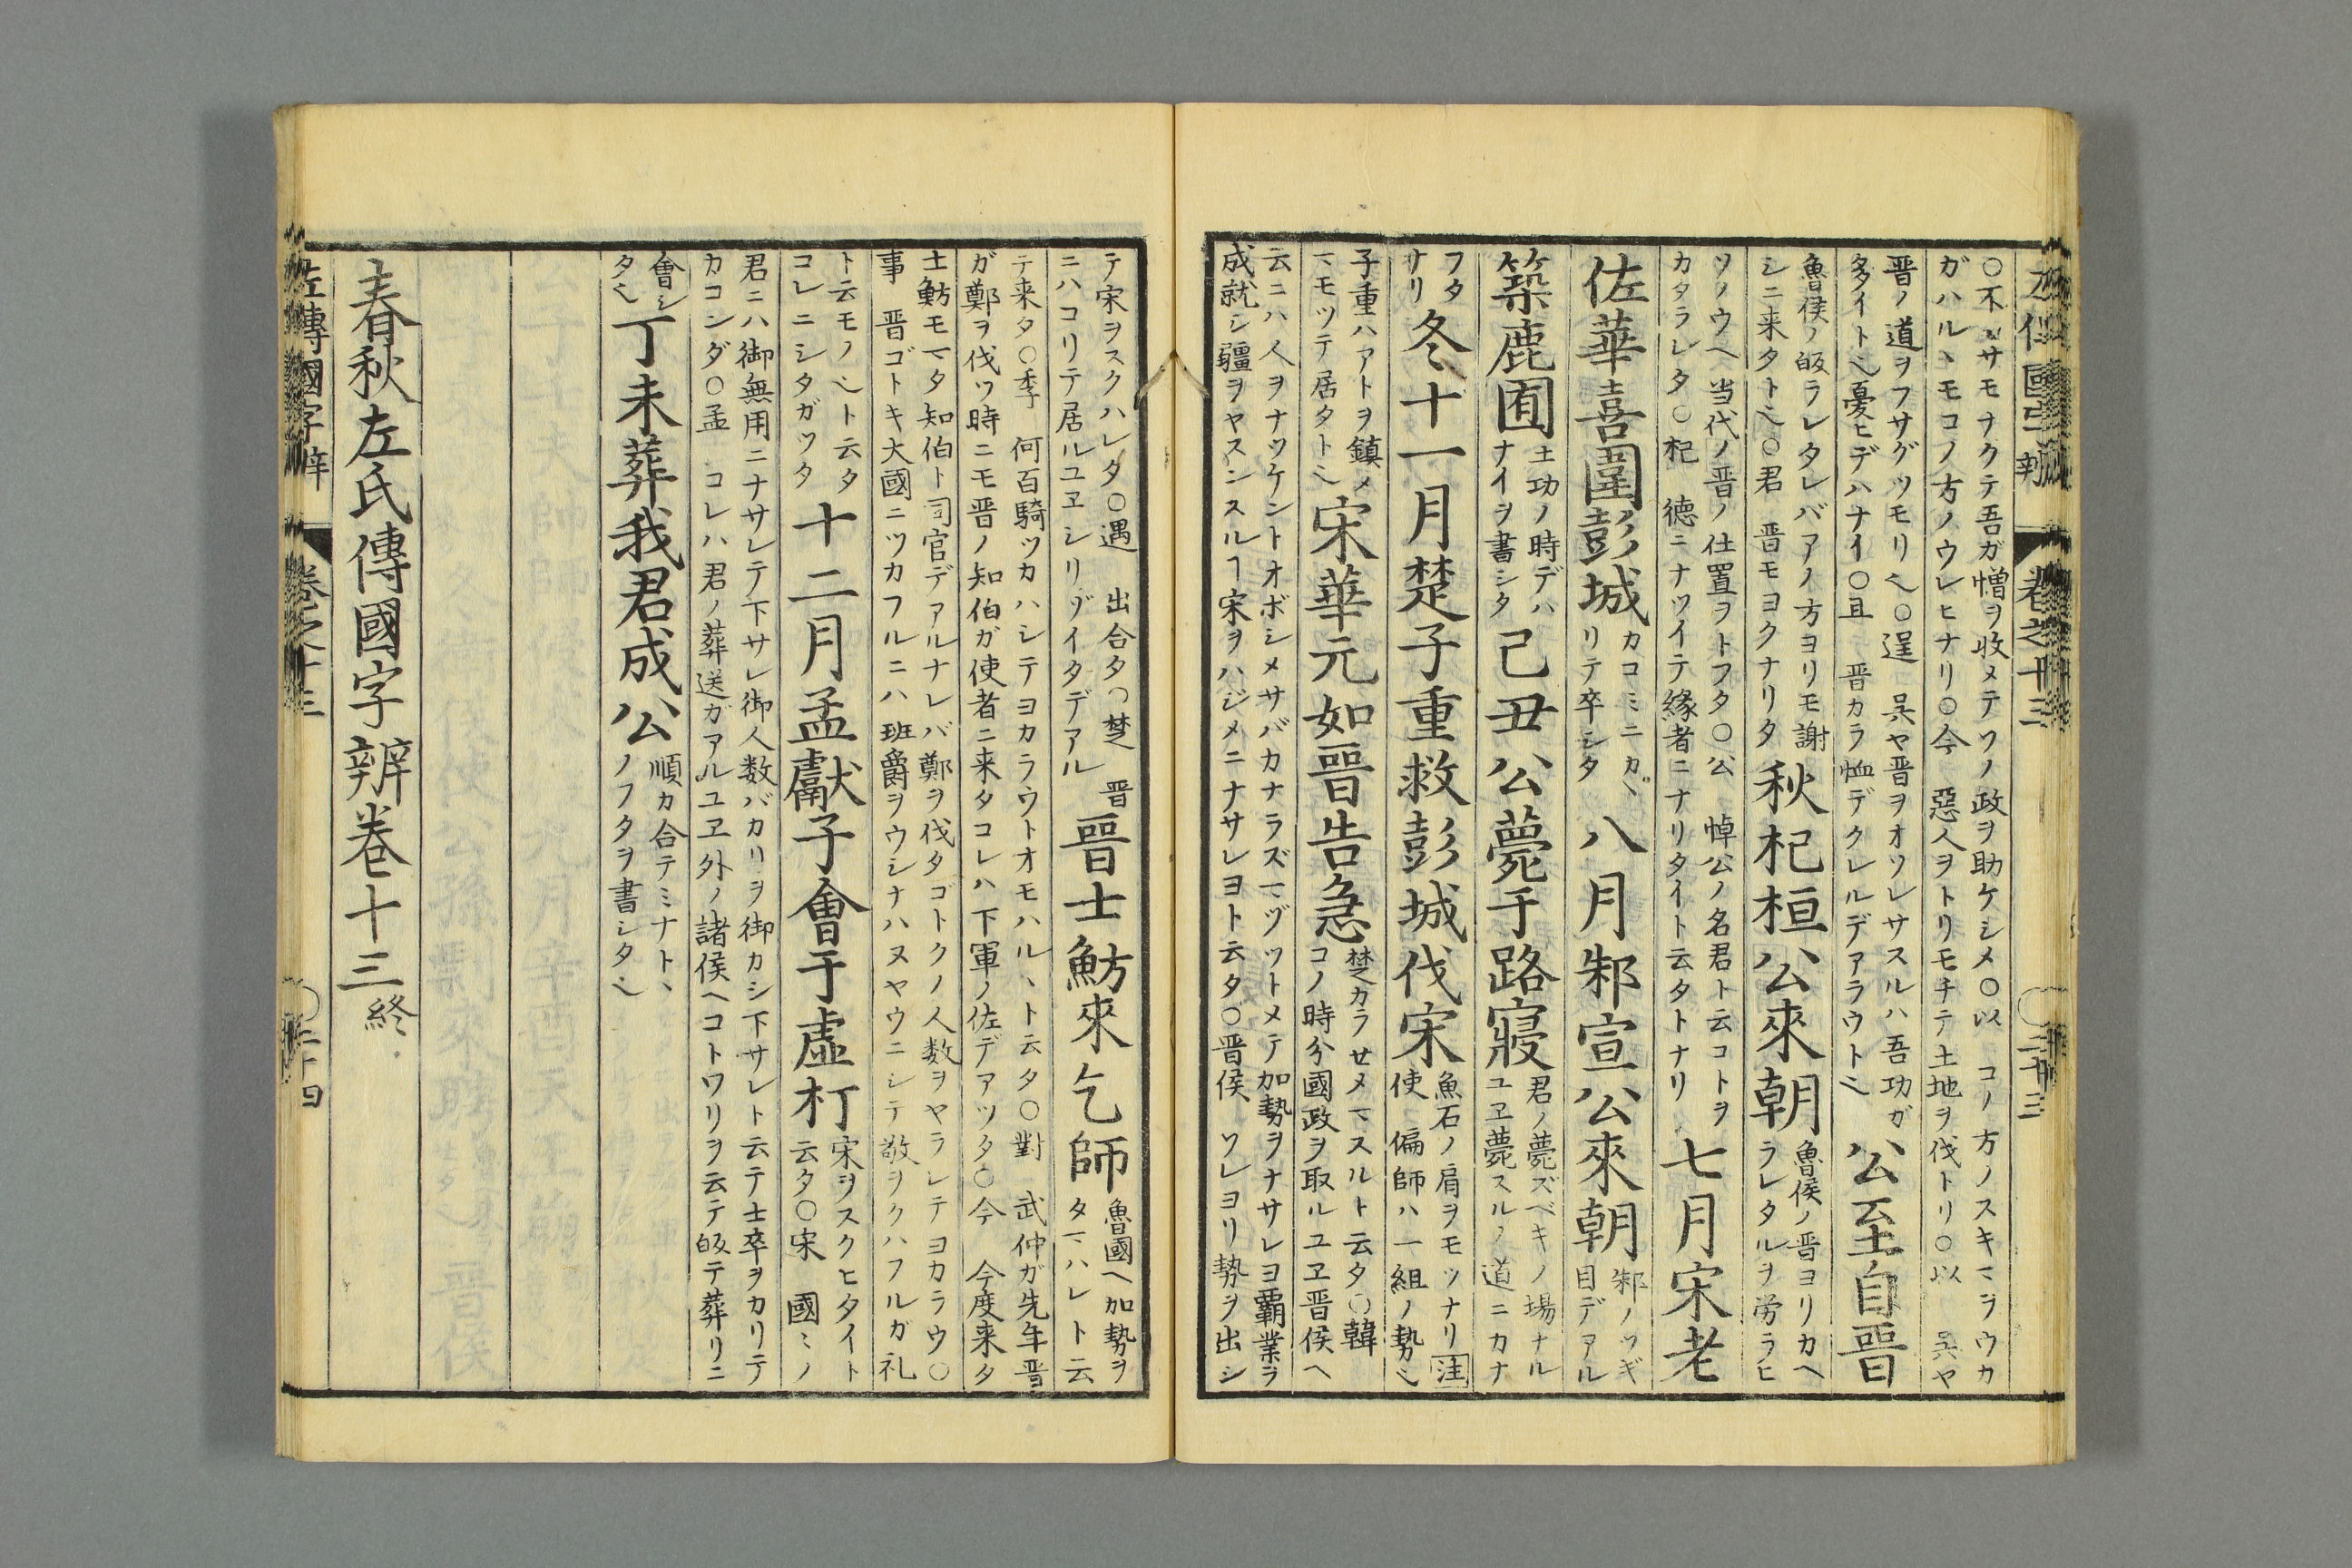 左傳國字辨 卷之十三 二十三
○不 サモナクテ吾ガ憎ヲ收メテソノ政ヲ助ケシメ○以 コノ方ノスキマヲウカ
ガハルヽモコノ方ノウレヒナリ○今 惡人ヲトリモチテ土地ヲ伐トリ○以 呉ヤ
晋ノ道ヲフサグツモリ也○逞 呉ヤ晋ヲオソレサスルハ吾功ガ
多イト也憂ヒデハナイ○且 晋カラ恤デクレルデアラウト也
公至自晉
魯侯ノ皈ラレタレバアノ方ヨリモ謝
シニ来タト也○君 晋モヨクナリタ
秋杞桓公來朝
魯侯ノ晋ヨリカヘ
ラレタルヲ労ラヒ
ソノウヘ当代ノ晋ノ仕置ヲトフタ○公 悼公ノ名君ト云コトヲ
カタラレタ○杞 徳ニナツイテ縁者ニナリタイト云タトナリ
七月宋老
佐華喜圍彭城
カコミニカヽ
リテ卒シタ
八月邾宣公來朝
邾ノツギ
目デアル
築鹿囿
土功ノ時デハ
ナイヲ書シタ
己丑公薨于路寢
君ノ薨ズベキノ場ナル
ユヱ薨スルノ道ニカナ
フタ
ナリ
冬十一月楚子重救彭城伐宋
魚石ノ肩ヲモツナリ注
使 偏師ハ一組ノ勢也
子重ハアトヲ鎮メ
マモツテ居タト也
宋華元如晉告急
楚カラせメマスルト云タ○韓
コノ時分國政ヲ取ルユヱ晋侯ヘ
云ニハ人ヲナツケントオボシメサバカナラズマヅツトメテ加勢ヲナサレヨ覇業ヲ
成就シ疆ヲヤスンスルヿ宋ヲハジメニナサレヨト云タ○晋侯 ソレヨリ勢ヲ出シ
テ宋ヲスクハレタ○遇 出合タ○楚 晋
ニハコリテ居ルユヱシリゾイタデアル
晉士魴來乞師
魯國ヘ加勢ヲ
タマハレト云
テ来タ○季 何百騎ツカハシテヨカラウトオモハルヽト云タ○對 武仲ガ先年晋
ガ鄭ヲ伐ツ時ニモ晋ノ知伯ガ使者ニ来タコレハ下軍ノ佐デアツタ○今 今度来タ
士魴モマタ知伯ト司官デアルナレバ鄭ヲ伐タゴトクノ人数ヲヤラレテヨカラウ○
事 晋ゴトキ大國ニツカフルニハ班爵ヲウシナハヌヤウニシテ敬ヲクハフルガ礼
ト云モノ也ト云タ
コレニシタガツタ
十二月孟獻子會于虛朾
宋ヲスクヒタイト
云タ○宋 國ミノ
君ニハ御無用ニナサレテ下サレ御人数バカリヲ御カシ下サレト云テ士卒ヲカリテ
カコンダ○孟 コレハ君ノ葬送ガアルユヱ外ノ諸侯ヘコトワリヲ云テ皈テ葬リニ
會シ
タ也
丁未葬我君成公
順カ合テミナトヽ
ノフタヲ書シタ也
春秋左氏傳國字辨卷十三終
左傳國字辨 卷之十三 二十四